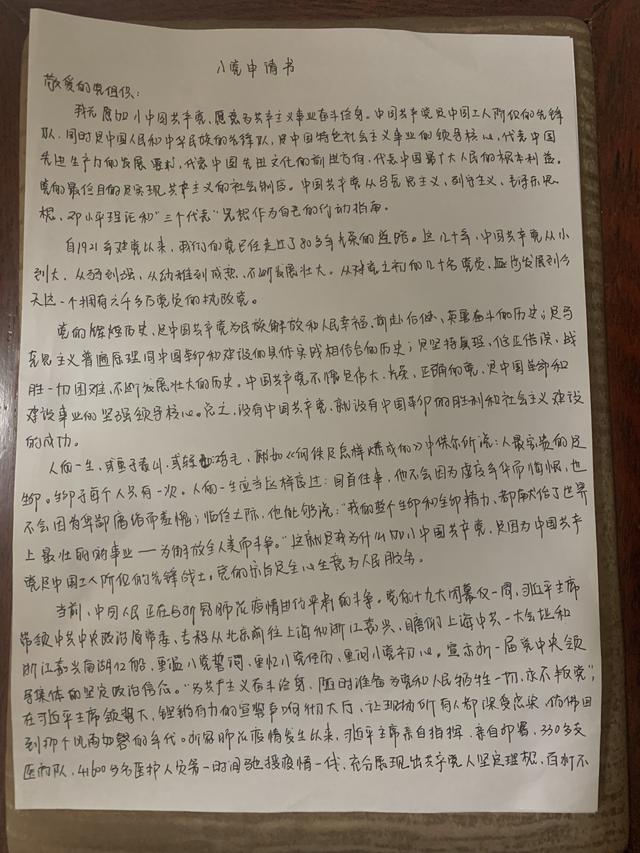 入党申请书
敬爱的党组织：
我志愿加入中国共产党，愿意为共产主义事业奋斗终身。中国共产党是中国工人阶级的先锋
队，同时是中国人民和中华民族的先锋队，是中国特色社会主义事业的领导核心，代表中国
先进生产力的发展要求，代表中国先进文化的前进方向，代表中国最广大人民的根本利益。
党的最终目的是实现共产主义的社会制度。中国共产党从马克思主义，列宁主义，毛泽东思
想，邓小平理论和“三个代表”思想作为自己的行动指南。
自1921年建党以来，我们的党已经走过了80多年光荣的道路。这几十年，中国共产党从小
到大，从弱到强，从幼稚到成熟，不断发展壮大。从建党之初的几十名党员，逐步发展到今
天这一个拥有六千多万党员的执政党。
党的辉煌历史，是中国共产党为民族解放和人民幸福，前赴后继，英勇奋斗的历史；是马
克思主义普遍原理同中国革命和建设的具体实践相结合的历史；是坚持真理，修正错误，战
胜一切困难，不断发展壮大的历史。中国共产党不愧是伟大，光荣，正确的党，是中国革命和
建设事业的坚强领导核心。总之，没有中国共产党，就没有中国革命的胜利和社会主义建设
的成功。
人的一生，或重于泰山，或轻如鸿毛， 《钢铁是怎样炼成的》中保尔所说：人最宝贵的是
生命。生命于每个人只有一次。人的一生应当这样度过：回首往事，他不会因为虚度年华而悔恨，也
不会因为卑鄙庸俗而羞愧；临终之际，他能够说：“我的整个生命和全部精力，都献给了世界
上最壮丽的事业——为解放全人类而斗争。”这就是我为什么加入中国共产党，是因为中国共产
党是中国工人阶级的先锋战士，党的宗旨是全心全意为人民服务。
当前，中国人民正在与新冠肺炎疫情进行严肃的斗争。党的十九大闭幕仅一周，习近平主席
带领中共中央政治局常委，专程从北京前往上海和浙江嘉兴，瞻仰上海中共一大会址和
浙江嘉兴南湖红船，重温入党誓词，重忆入党经历，重问入党初心。宣示新一届党中央领
导集体的坚定政治信念。“为共产主义奋斗终身，随时准备为党和人民牺牲一切，永不叛党”；
在习近平主席领誓下，铿锵有力的宣誓声响彻大厅，让现场所有人都深受感染，仿佛回
到那个风雨如磐的年代。新冠肺炎疫情发生以来，习近平主席亲自指挥，亲自部署，330多支
医疗队，41600多名医护人员第一时间驰援疫情一线，充分展现出共产党人坚定理想，百折不